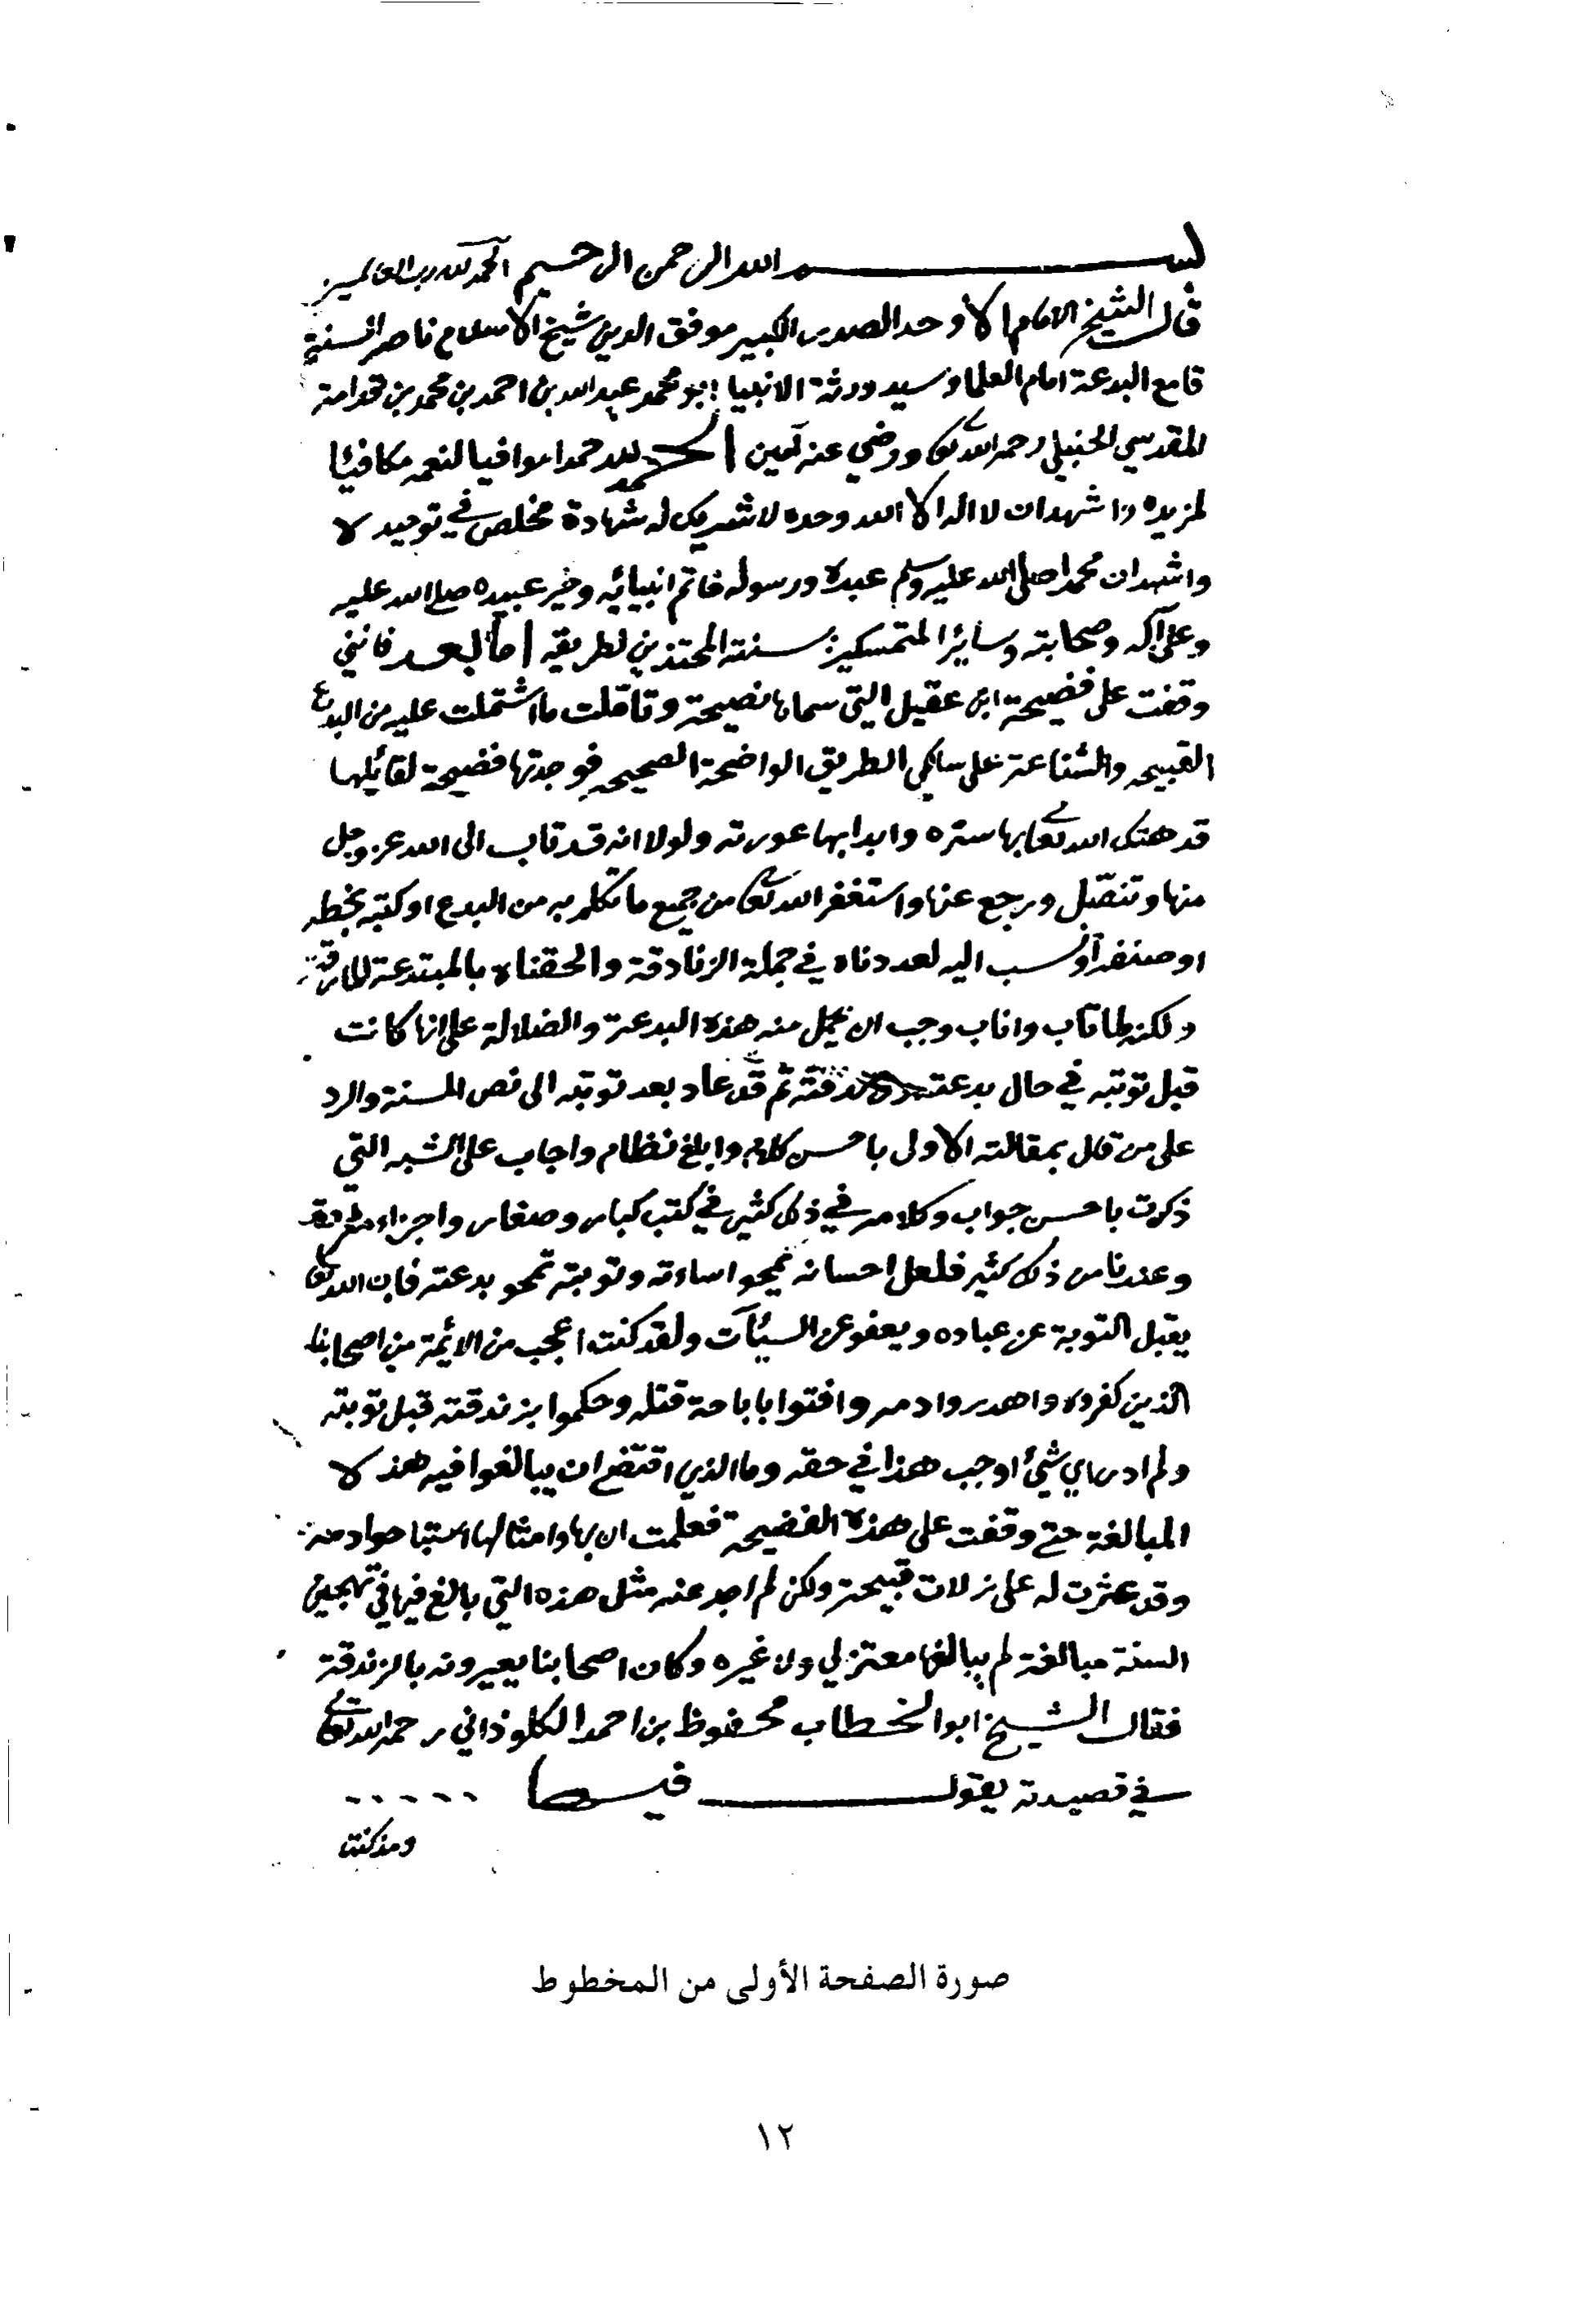 بســـــــم الله الرحمن الرحيم الحمد لله رب العالمين
قال الشيخ الامام الاوحد الصدر الكبير موفق الدين شيخ الاسلام ناصر السنة
قامع البدعة امام العلما وسيد ورثة الانبيا ابو محمد عبد الله بن احمد بن محمد بن قدامة
المقدسي الحنبلي رحمه الله تعالى ورضي عنه آمين الحمد لله حمدا موافيا لنعمه مكافيئا
لمزيده واشهد ان لا اله الا الله وحده لا شريك له شهادة مخلص في توحيده
واشهد ان محمدا صلى الله عليه وسلم عبده ورسوله خاتم انبيائه وخير عبيده صلى الله عليه
وعلى آله وصحابته وسائر المتمسكين بسنته المحتذين لطريقه اما بعد فانني
وقفت على فضيحة ابن عقيل التي سماها نصيحة وتأملت ما اشتملت عليه من البدع
القبيحه والشناعة على سالكي الطريق الواضحة الصحيحه فوجدتها فضيحة لقائلها
قد هتك الله تعالى بها ستره وابدا بها عورته ولولا انه قد تاب الى الله عز وجل
منها وتنصل ورجع عنها واستغفر الله تعالى من جميع ما تكلم به من البدع او كتبه بخطه
او صنفه او نسب اليه لعددناه في جملة الزنادقة والحقناه بالمبتدعة المارقة
ولكنه لما تاب واناب وجب ان تحمل منه هذه البدعة والضلالة على انها كانت
قبل توبته في حال بدعته وزندقته ثم قد عاد بعد توبته الى نص السنة والرد
على من قال بمقالته الاولى باحسن كلام وابلغ نظام واجاب على الشبه التي
ذكرت باحسن جواب وكلامه في ذلك كثير في كتب كبار وصغار واجزاء مفرقة
وعندنا من ذلك كثير فلعل احسانه يمحوا اساءته وتوبته تمحو بدعته فان الله تعالى
يقبل التوبة عن عباده ويعفو عن السيئآت ولقد كنت اعجب من الائمة من اصحابنا
الذين كفروه واهدروا دمه وافتوا باباحة قتله وحكموا بزندقته قبل توبته
ولم ادر اي شيئ اوجب هذا في حقه وما الذي اقتضى ان يبالغوا فيه هذه
المبالغة حتى وقفت على هذه الفضيحة فعلمت ان بها وامثالها استباحوا دمه
وقد عثرت له على زلات قبيحة ولكن لم اجد عنه مثل هذه التي بالغ فيها في تهجين
السنة مبالغة لم يبالغها معتزلي ولا غيره وكان اصحابنا يعيرونه بالزندقة
فقال الشيخ ابو الخطاب محفوظ بن احمد الكلوذاني رحمه الله تعالى
في قصيدته يقول فيها
ومذ كنت
صورة الصفحة الأولى من المخطوط
١٢